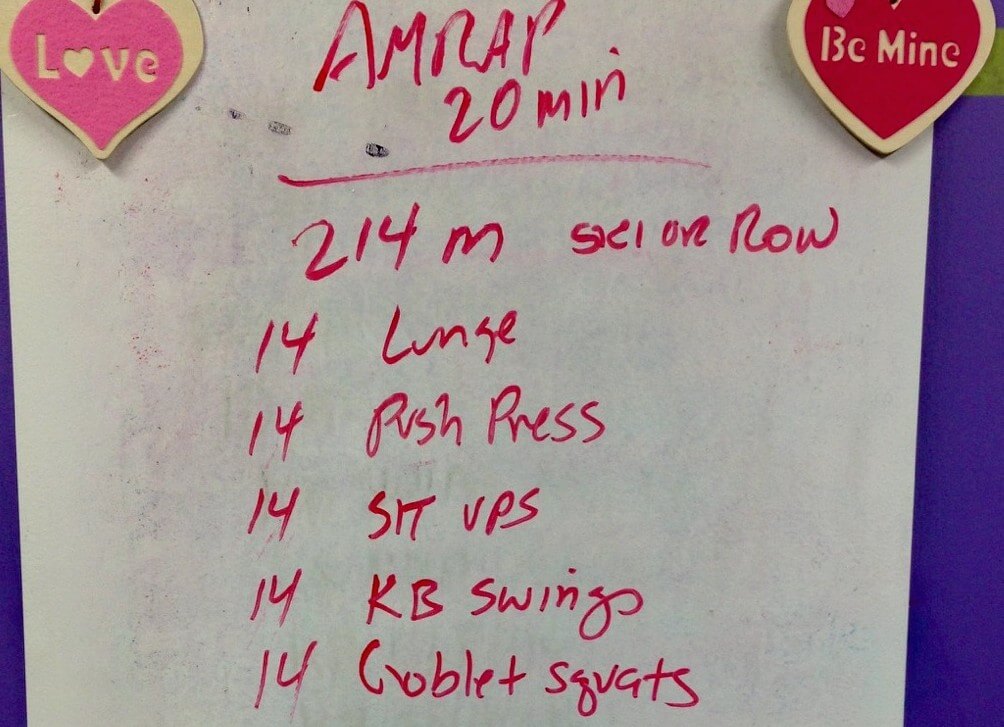 Love
Be Mine
AMRAP
20 min
214 m ski or Row
14 Lunge
14 Push Press
14 SIT UPS
14 KB Swings
14 Goblet squats